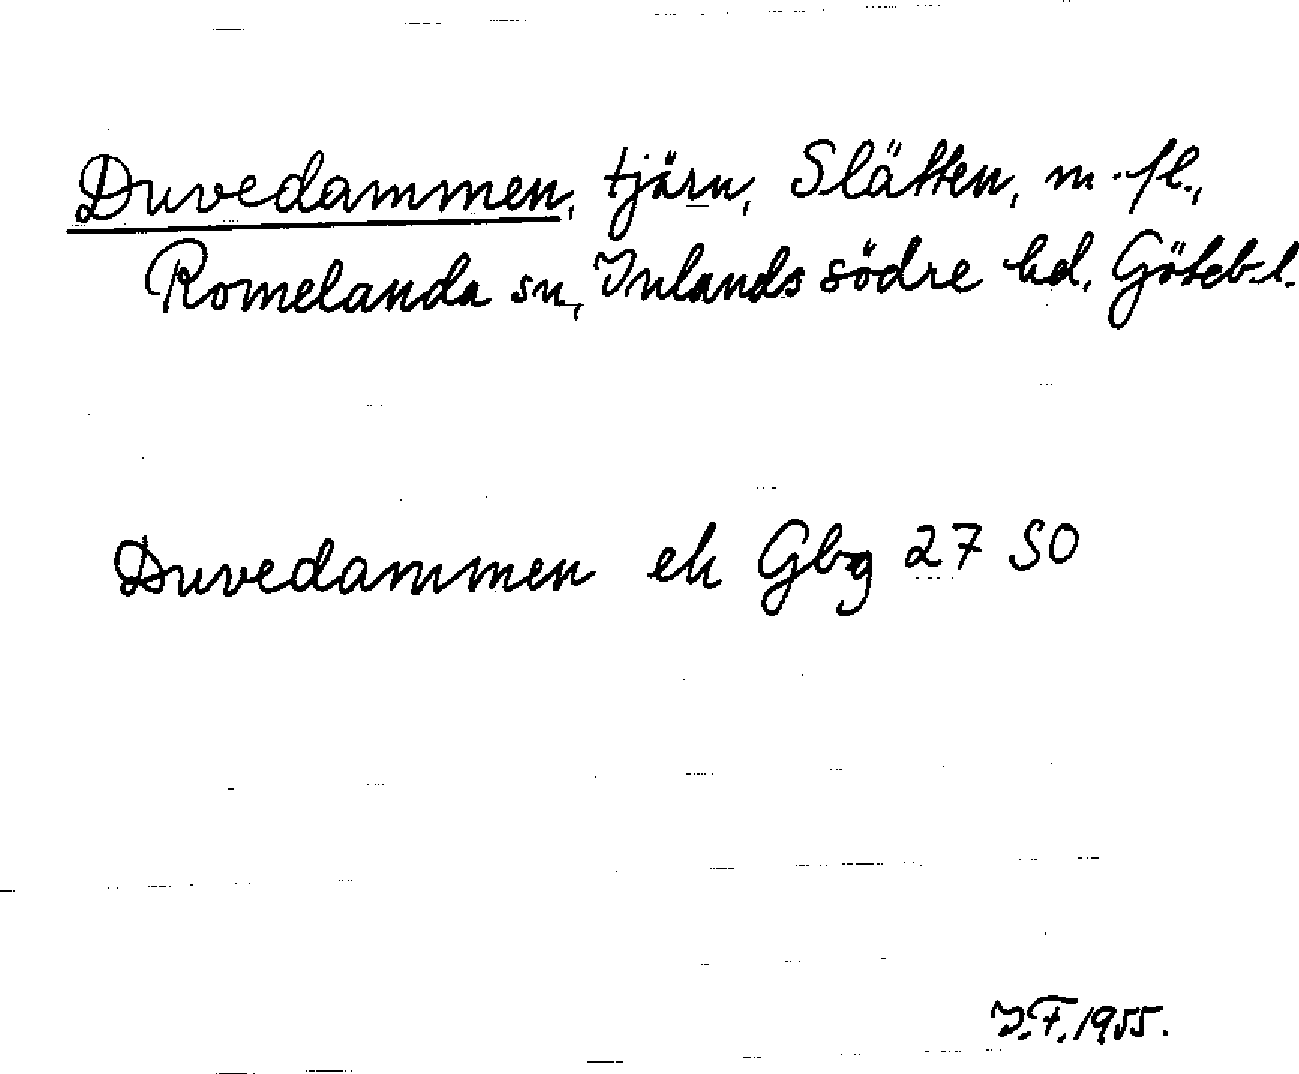 Duvedammen, tjärn, Slätten, m.fl.,
Romelanda sn, Inlands södre hd, Göteb.l.
Duvedammen ek Gbg 27 SO
I.F. 1955.